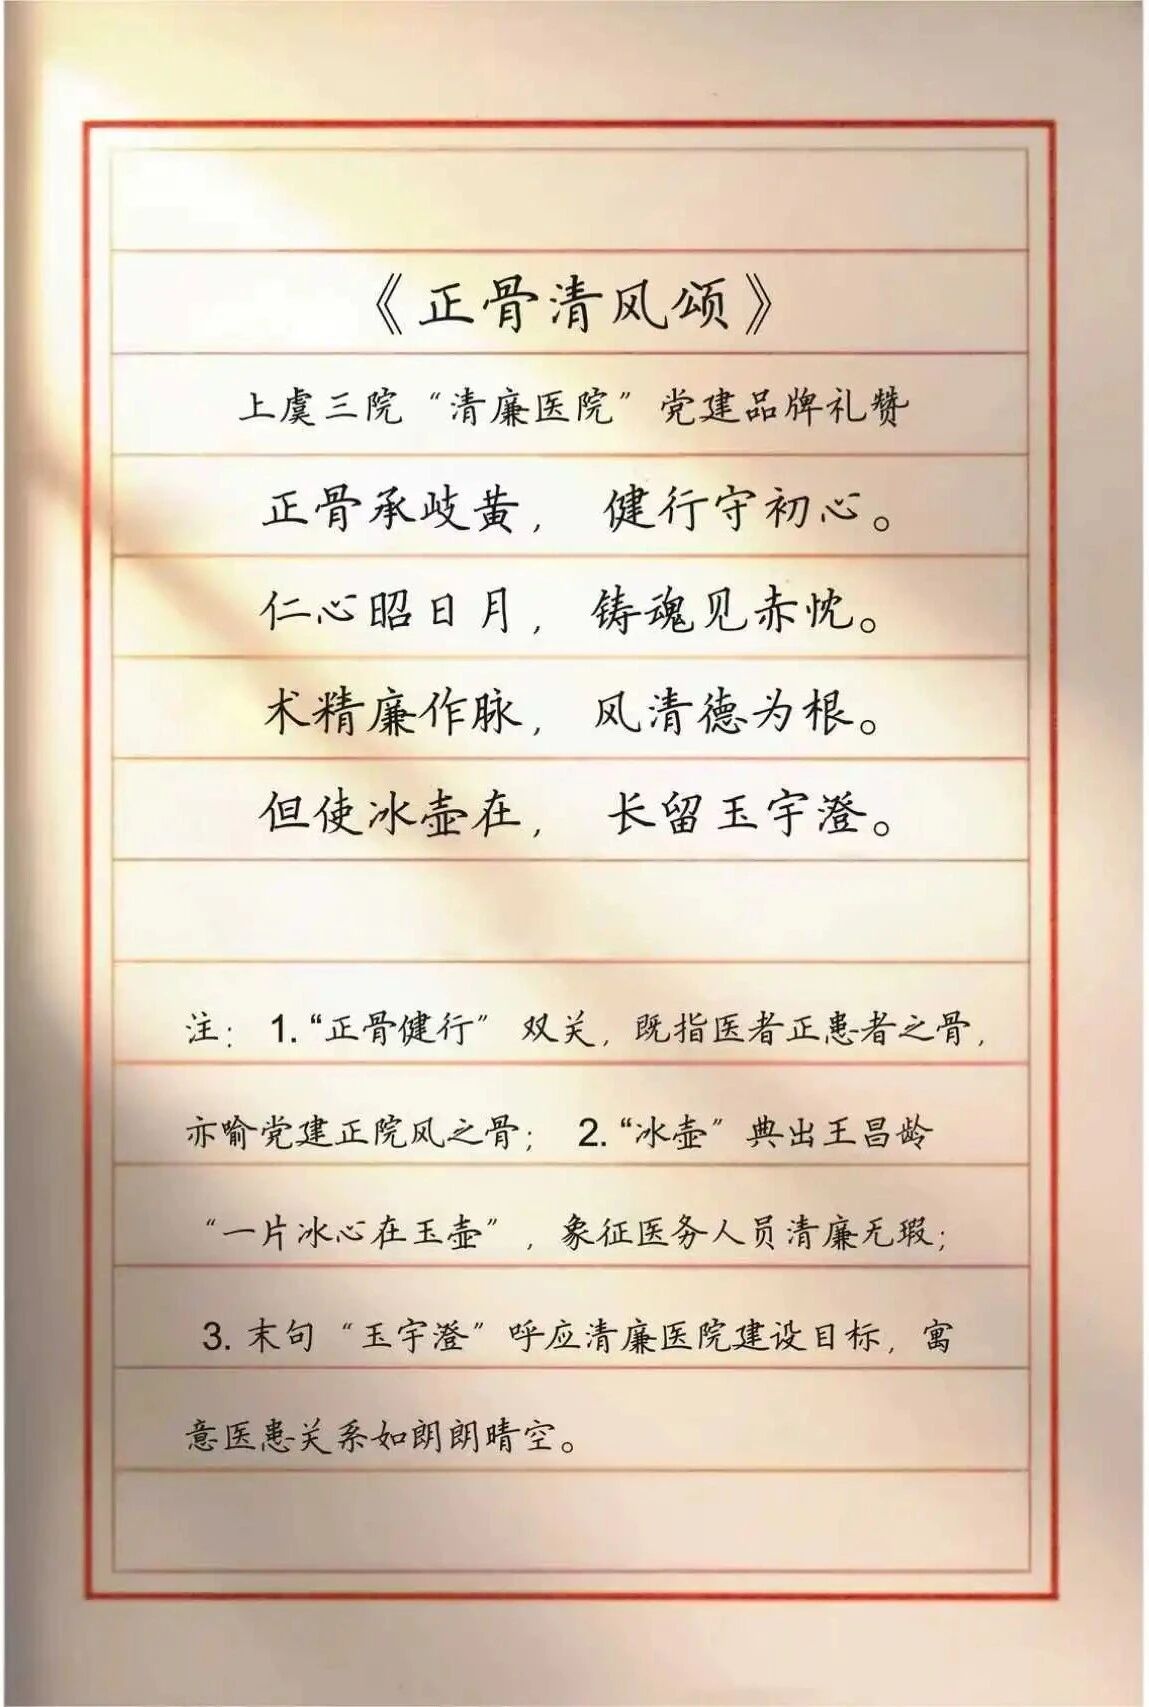 《正骨清风颂》
上虞三院“清廉医院”党建品牌礼赞
正骨承岐黄， 健行守初心。
仁心昭日月， 铸魂见赤忱。
术精廉作脉， 风清德为根。
但使冰壶在， 长留玉宇澄。
注： 1.“正骨健行”双关，既指医者正患者之骨，
亦喻党建正院风之骨； 2.“冰壶”典出王昌龄
“一片冰心在玉壶”，象征医务人员清廉无瑕；
3.末句“玉宇澄”呼应清廉医院建设目标，寓
意医患关系如朗朗晴空。